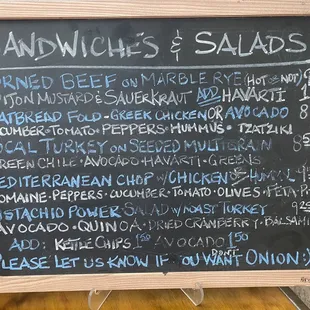 ANDWICHES & SALADS
ORNED BEEF ON MARBLE RYE (HOT OR NOT) 9
ITON MUSTARD & SAUERKRAUT ADD HAVARTI 1
ATBREAD FOLD - GREEK CHICKEN OR AVOCADO 8
CUMBER • TOMATO • PEPPERS • HUMMUS • TZATZIKI
OCAL TURKEY ON SEEDED MULTIGRAIN 8
GREEN CHILE • AVOCADO • HAVARTI • GREENS
EDITERRANEAN CHOP W/CHICKEN OR HUM 9
OMAINE • PEPPERS • CUCUMBER • TOMATO • OLIVES • FETA
ISTACHIO POWER SALAD W/ROAST TURKEY 9.25
AVOCADO • QUINOA • DRIED CRANBERRY • BALSAMI
ADD: KETTLE CHIPS 1.50 / AVOCADO 1.50
PLEASE LET US KNOW IF YOU DON'T WANT ONION :)